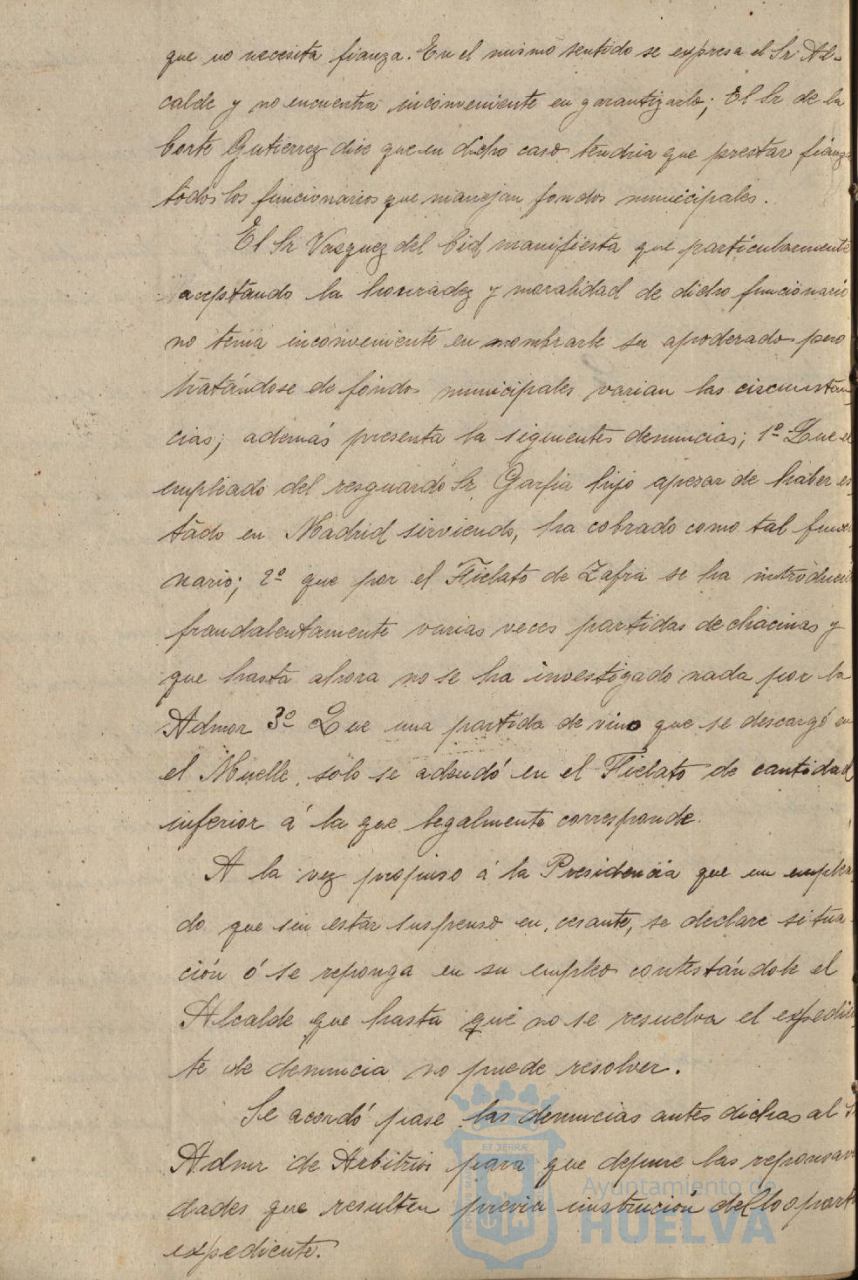 que no necesita fianza. En el mismo sentido se expresa el Sr Al-
calde y no encuentra inconveniente en garantizarlo; El Sr de la
Corte Gutierrez dice que en dicho caso tendria que prestar fianza
todos los funcionarios que manejan fondos municipales.
El Sr Vazquez del Cid, manifiesta que particularmente
aceptando la honradez y moralidad de dicho funcionario
no tenia inconveniente en nombrarle su apoderado pero
tratándose de fondos municipales varian las circunstan
cias; además presenta la siguientes denuncias; 1º Que el
empleado del resguardo Sr. Garfia hijo apesar de haber es
tado en Madrid sirviendo, ha cobrado como tal funcio
nario; 2º que por el Fielato de Zafra se ha introduci
fraudalentamente varias veces partidas de chacinas y
que hasta ahora no se ha investigado nada por la
Admor 3º Que una partida de vino que se descargó en
el Muelle, solo se adeudó en el Fielato de cantidad
inferior á la que legalmente corresponde.
A la vez propuso á la Presidencia que un emplea
do que sin estar suspenso en, cesante, se declare situa
ción ó se reponga en su empleo contestándole el
Alcalde que hasta que no se resuelva el expedien
te de denuncia no puede resolver.
Se acordó pase las denuncias antes dichas al S
Admr de Arbitrios para que depure las
dades que resulten previa instrución del
expediente.
ET TERRAE
Ayuntamiento de
HUELVA